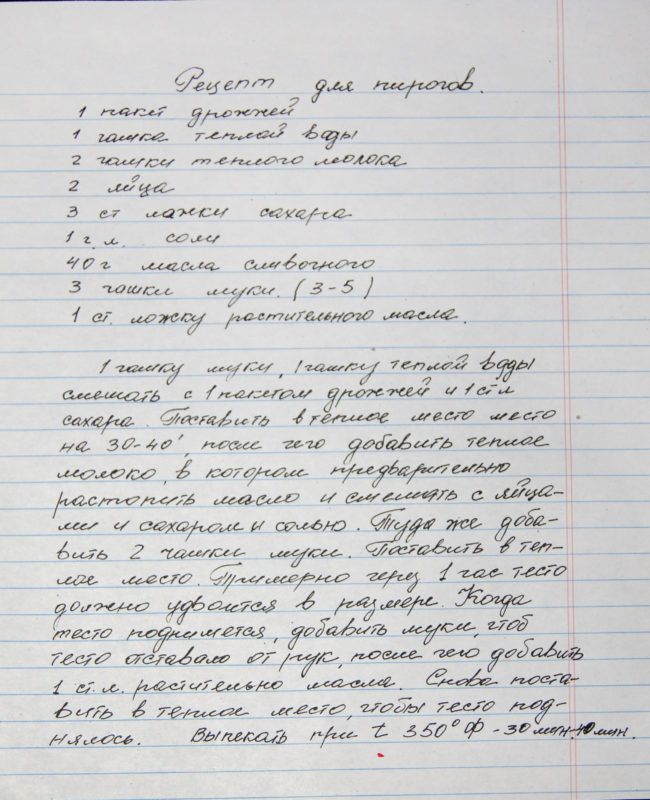 Рецепт для пирогов.
1 пакет дрожжей
1 чашка теплой воды
2 чашки теплого молока
2 яйца
3 ст ложки сахара
1 г. л. соли
40 г масла сливочного
3 чашки муки. (3-5)
1 ст. ложку растительного масла.
1 чашку муки, 1 чашку теплой воды
смешать с 1 пакетом дрожжей и 1 ст л
сахара. Поставить в теплое место место
на 30-40', после чего добавить теплое
молоко, в котором предварительно
растопить масло и смешать с яйца-
ми и сахаром и солью. Туда же доба-
вить 2 чашки муки. Поставить в теп-
лое место. Примерно через 1 час тесто
должно удвоится в размере. Когда
тесто поднимется, добавить муки, чтоб
тесто отставало от рук, после чего добавить
1 ст. л. растительно масла. Снова поста-
вить в теплое место, чтобы тесто под-
нялось. Выпекать при t 350° Ф - 30 мин-40 мин.